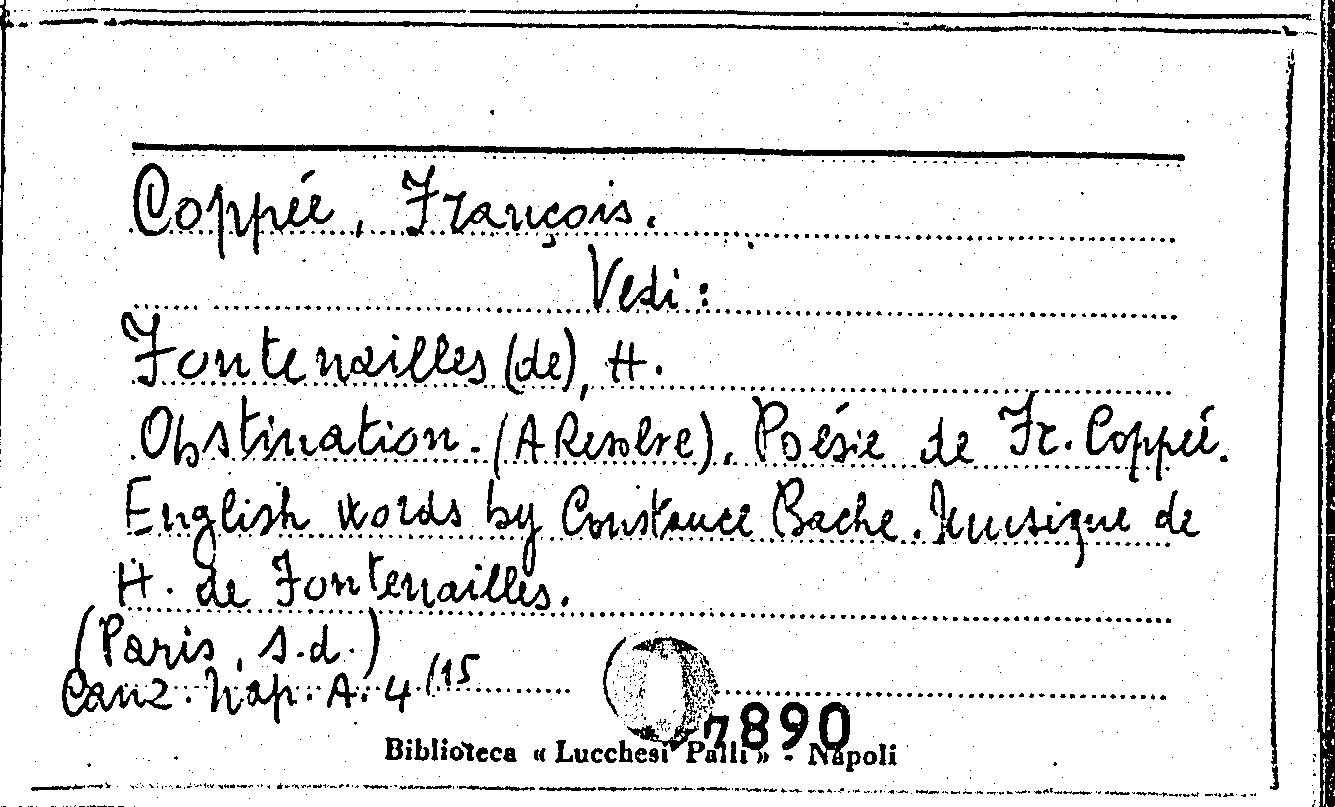 Coppée, François.
Vedi:
Fontenailles (de), H.
Obstination. (A Resolve). Poésie de Fr. Coppée.
English words by Constance Bache. Musique de
H. de Fontenailles.
(Paris, s.d.)
Canz. Nap. A. 4 /15
7890
Biblioteca « Lucchesi Palli » - Napoli